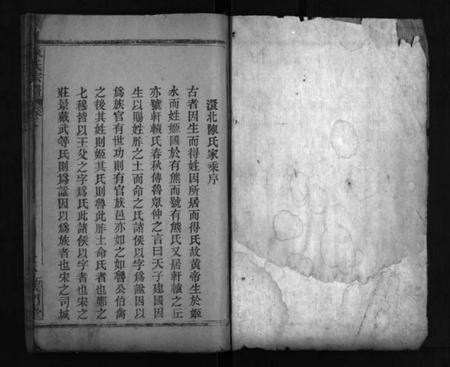 濲北陳氏家乘序
古者因生而得姓因所居而得氏故黃帝生於姬
水而姓姬國於有熊而號有熊氏又居軒轅之丘
亦號軒轅氏春秋傳魯眾仲之言曰天子建國因
生以賜姓胙之土而命之氏諸侯以字為諡因以
為族官有世功則有官族邑亦如之如魯公伯禽
之後其姓則姬其氏則魯此胙土命氏者也鄭之
七穆皆以王父之字為氏此諸侯以字者也宋之
莊景戴武等氏則為諡因以為族者也宋之司城